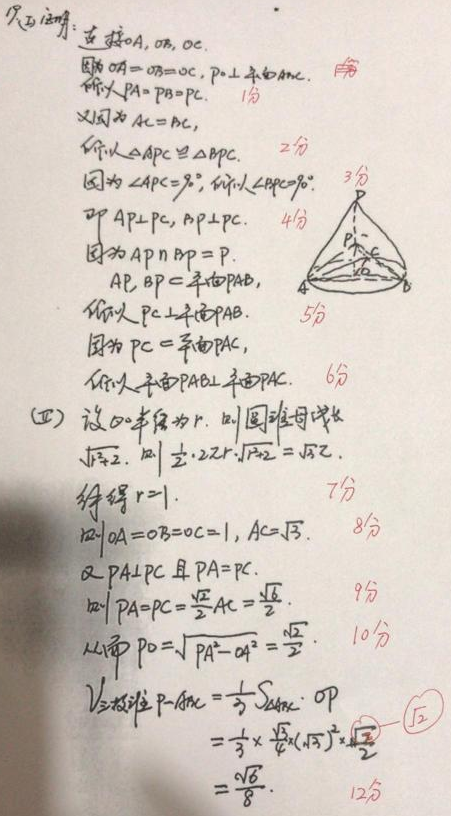 (I)证明:
连接OA, OB, OC.
因为OA=OB=OC, PO⊥平面ABC.
所以PA=PB=PC. 1分
又因为AC=BC,
所以△APC≌△BPC. 2分
因为∠APC=90°, 所以∠BPC=90°. 3分
即AP⊥PC, BP⊥PC. 4分
因为AP∩BP=P.
AP, BP⊂平面PAB,
所以PC⊥平面PAB. 5分
因为PC⊂平面PAC,
所以平面PAB⊥平面PAC. 6分
D
P
C
A
O
B
(II) 设⊙O半径为r. 则圆锥母线长
√r²+2. 则 1/2·2πr·√r²+2=√3π.
解得r=1. 7分
则OA=OB=OC=1, AC=√3. 8分
又PA⊥PC且PA=PC.
则PA=PC=√2/2 AC=√6/2. 9分
从而PO=√PA²-OA²=√2/2. 10分
V三棱锥P-ABC=1/3 S△ABC·OP
=1/3×√3/4×(√3)²×√2/2
√2
=√6/8. 12分